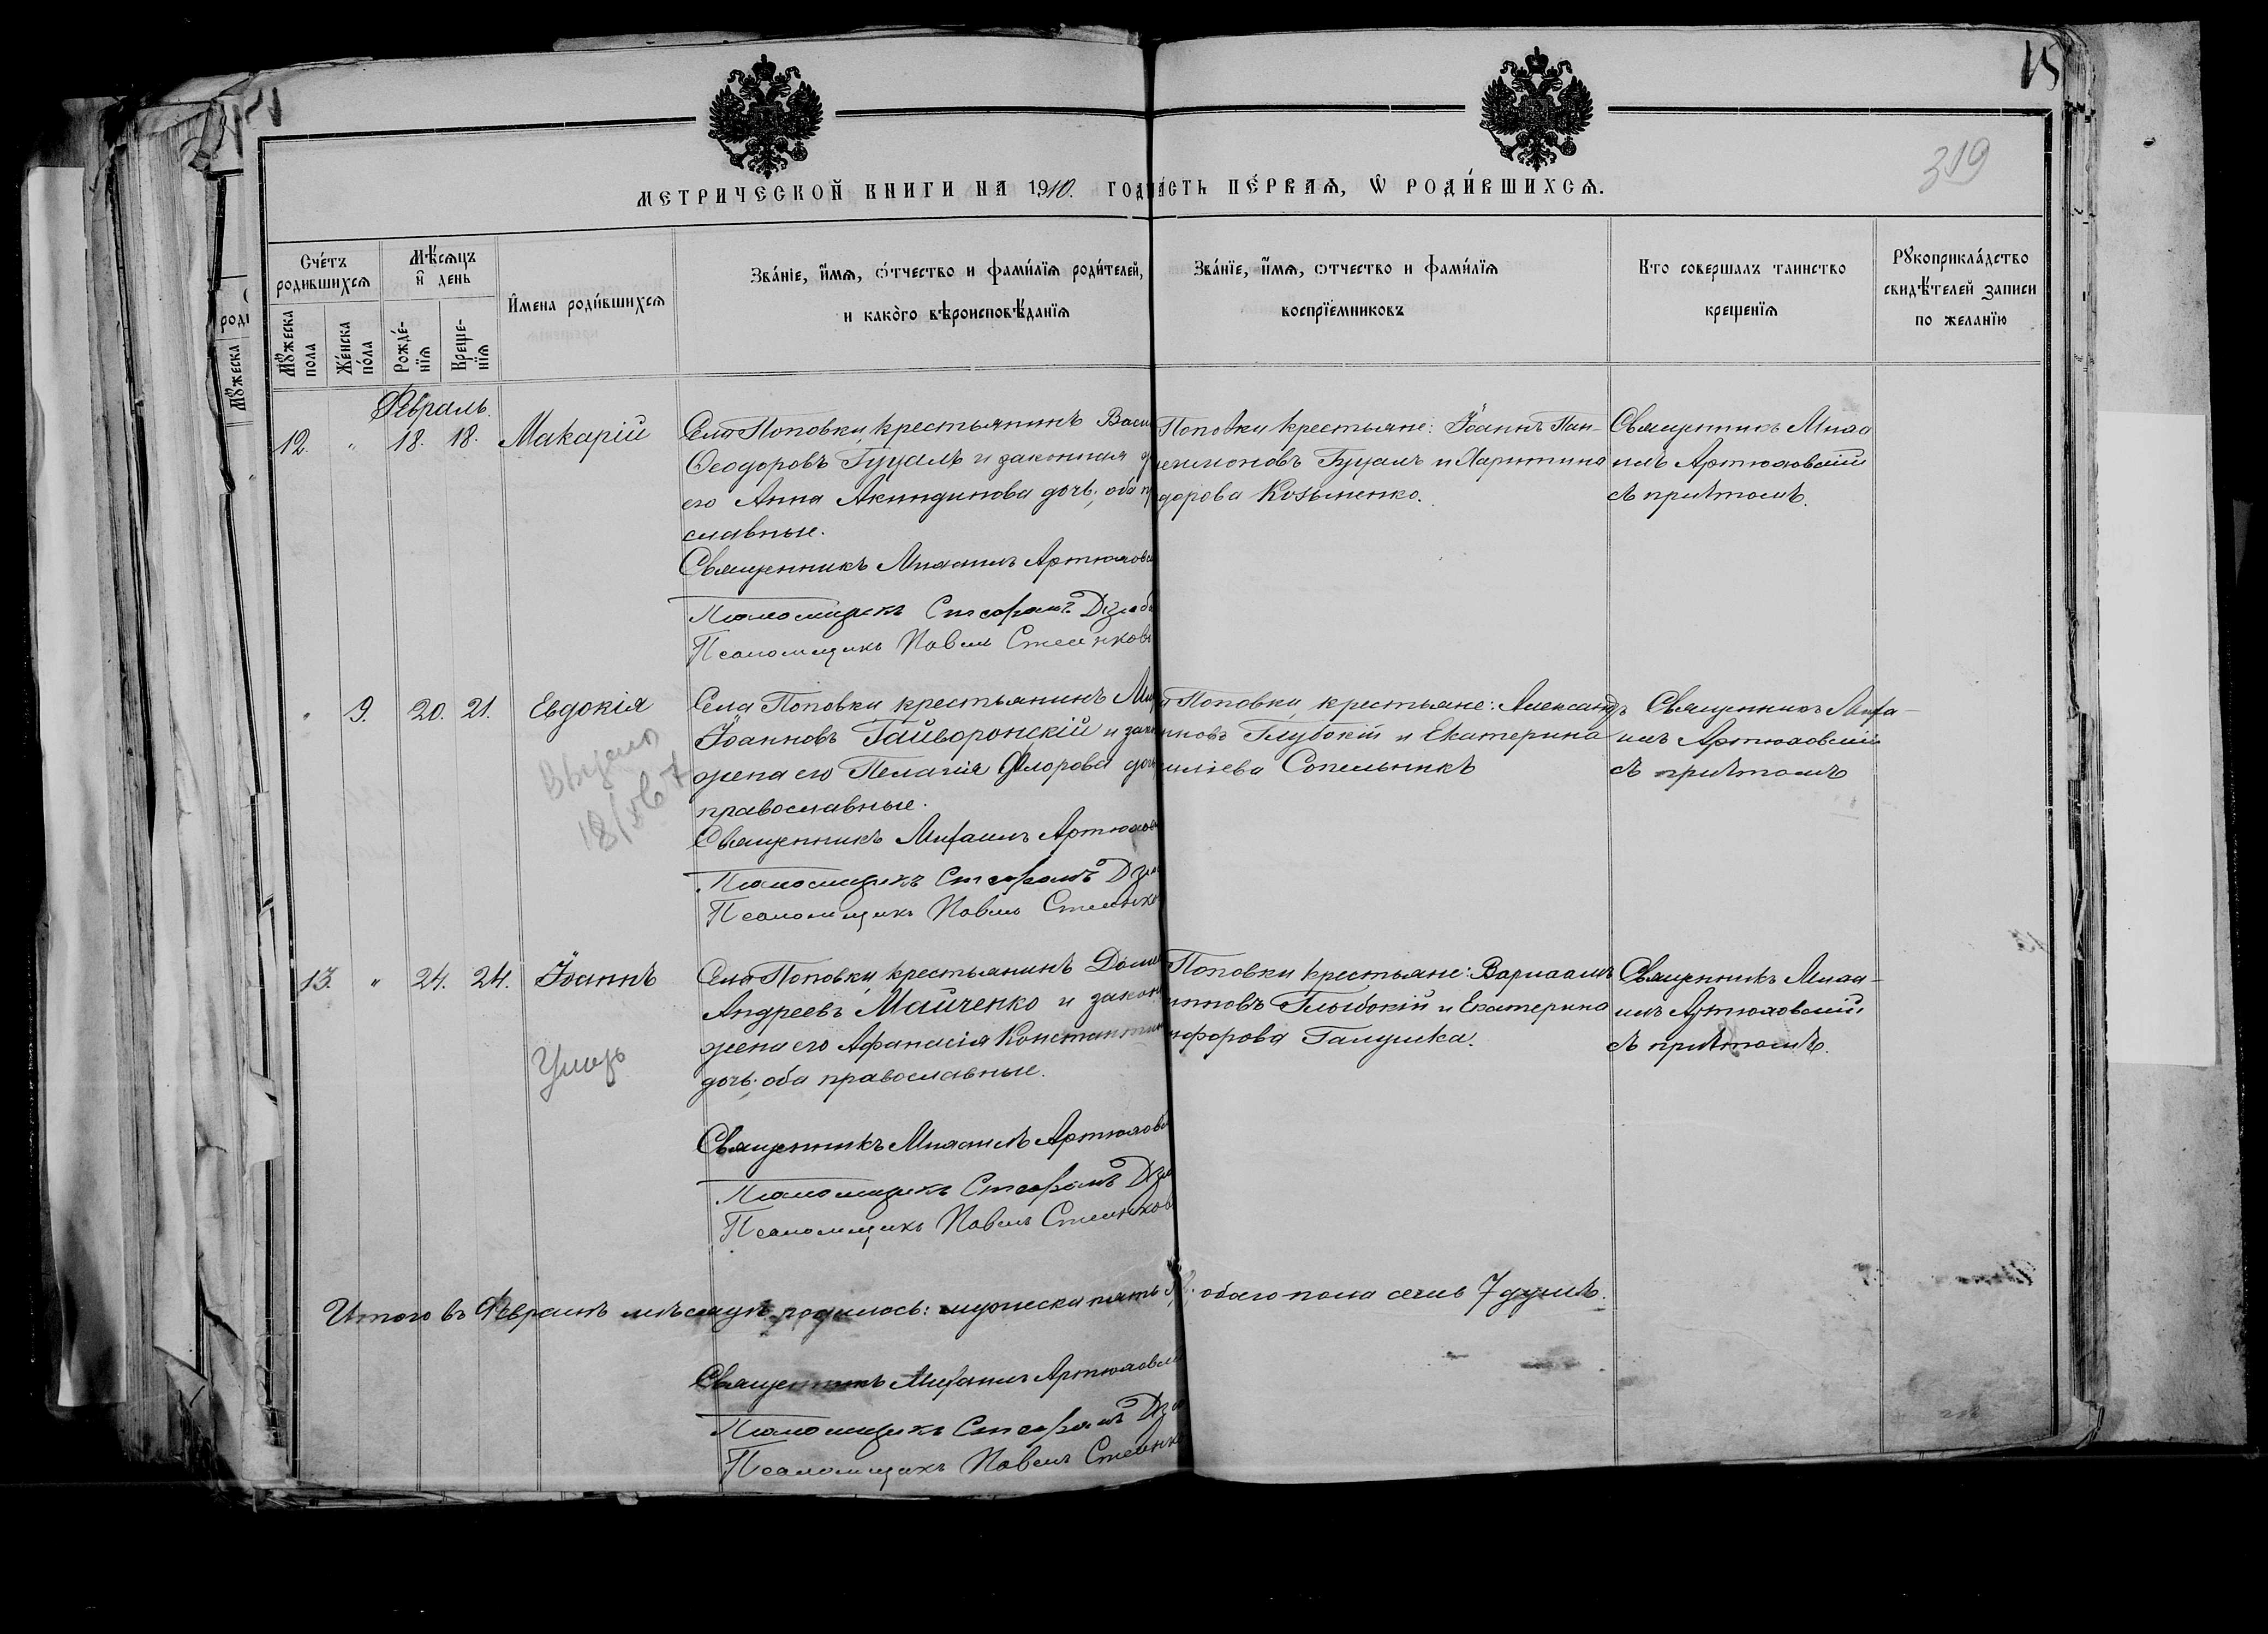 15
319
МЕТРИЧЕСКОЙ КНИГИ НА 1910. ГОД
ЧА́СТЬ ПЕ́РВАЯ, Ѡ РОДИ́ВШИХСЯ.
Сче́тъ родившихся
Мꙋ́жеска пола
Же́нска по́ла
Мѣ́сяцъ и҆ день
Рожде́-нїя
Креще-нїя
И҆мена роди́вшихся
Зва́нїе, и҆́мя, ѻ҆́тчество и фами́лїя роди́телей,
и како́го вѣроисповѣ́данїя
Зва́нїе, и҆́мя, ѻтчество и фами́лїя
воспрїе́мниковъ
Кто совершалъ таинство
крещенїя
Рꙋкоприкла́дство
свидѣ́телей записи
по желанїю
Февраль.
12. " 18. 18. Макарій
Села Поповки, крестьянинъ Васи
Ѳеодоровъ Гуцалъ и законная
его Анна Акиндинова дочь; оба пр
славные.
Священникъ Михаилъ Артюховс
Псаломщикъ Стефанъ Дзюб
Псаломщикъ Павелъ Стеенков
Поповки крестьяне: Іоаннъ Пан-
Гуцалъ и Харитина
дорова Козьменко.
Священникъ Миха
илъ Артюховскій
съ причтомъ.
" 9. 20. 21. Евдокія
Села Поповки крестьянинъ Ми
Іоанновъ Гайворонскій и зак
жена его Пелагія Флорова доч
православные.
Священникъ Михаилъ Артюхов
Псаломщикъ Стефанъ Дзю
Псаломщикъ Павелъ Стеенко
Поповки, крестьяне: Александръ
новъ Глубокій и Екатерина
иліева Сопельникъ
Священникъ Миха-
илъ Артюховскій
съ причтомъ
13. " 24. 24. Іоаннъ
Умеръ
Села Поповки, крестьянинъ Доме
Андреевъ Майченко и закон
жена его Афанасія Константин
дочь; оба православные.
Священникъ Михаилъ Артюхов
Псаломщикъ Стефанъ Дзю
Псаломщикъ Павелъ Стеенков
Поповки крестьяне: Варлаамъ
итовъ Глыбокій и Екатерина
ифорова Галушка.
Священникъ Миха-
илъ Артюховскій
съ причтомъ.
Итого въ Февралѣ мѣсяцѣ родилось: мужеска пять обоего пола семь 7 душъ.
Священникъ Михаилъ Артюховс
Псаломщикъ Стефанъ Дзю
Псаломщикъ Павелъ Стеенк